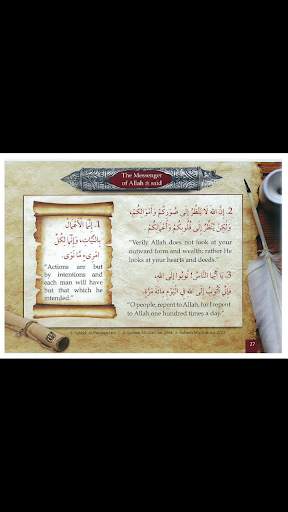 The Messenger
of Allah ﷺ said
1. إِنَّمَا الْأَعْمَالُ
بِالنِّيَّاتِ، وَإِنَّمَا لِكُلِّ
امْرِىءٍ مَا نَوَى.
"Actions are but
by intentions and
each man will have
but that which he
intended."
2. إِنَّ اللهَ لَا يَنْظُرُ إِلَى صُوَرِكُمْ وَأَمْوَالِكُمْ،
وَلَكِنْ يَنْظُرُ إِلَى قُلُوبِكُمْ وَأَعْمَالِكُمْ.
"Verily Allah does not look at your
outward form and wealth; rather He
looks at your hearts and deeds."
3. يَا أَيُّهَا النَّاسُ! تُوبُوا إِلَى اللهِ،
فَإِنِّي أَتُوبُ إِلَى اللهِ فِي الْيَوْمِ مِائَةَ مَرَّةٍ.
"O people, repent to Allah, for I repent
to Allah one hundred times a day."
27